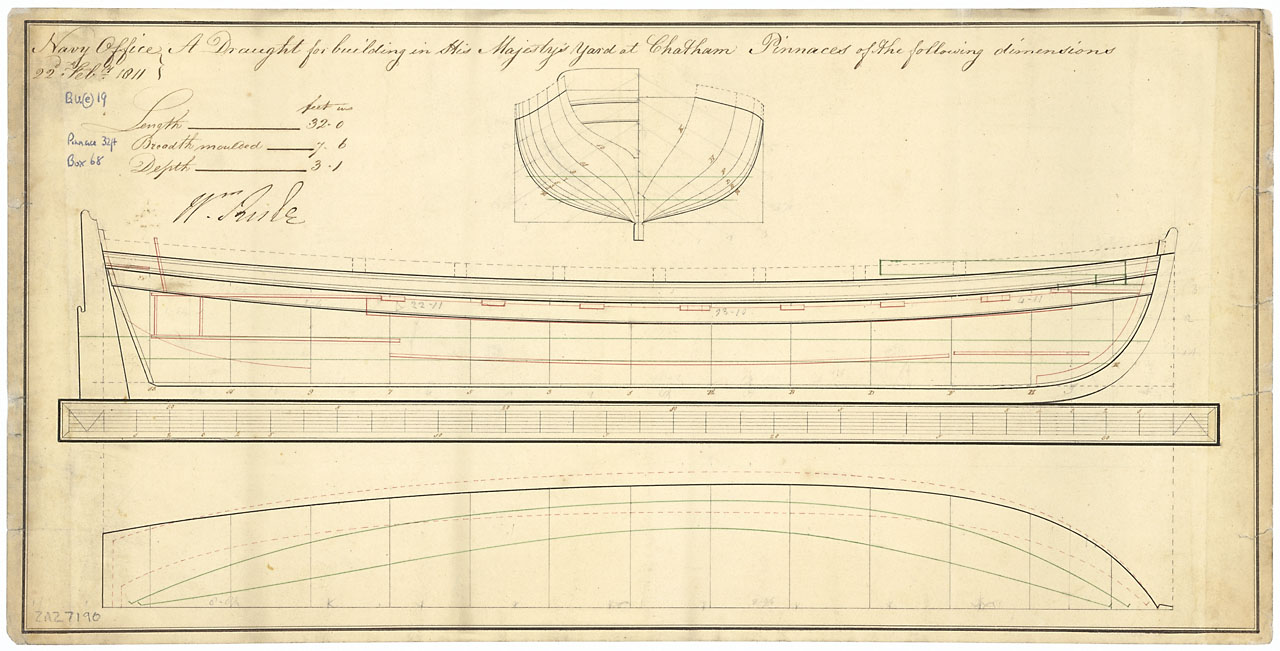 Navy Office } A Draught for building in His Majesty's Yard at Chatham Pinnaces of the following dimensions
22nd Feby 1811
BU(e) 19
feet ins
Length 32-0
Pinnace 32ft
Breadth moulded 7-6
Box 68
Depth 3-1
Wm Rule
22-11
23-10
ZAZ7190